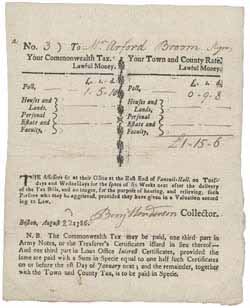 No. 3) To Mr. Arford Broom Negro
Your Commonwealth Tax. Your Town and County Rate,
Lawful Money. Lawful Money.
Poll, 1-5-10 Poll, 0-9-8
Houses and Lands, Houses and Lands,
Personal Estate and Faculty, Personal Estate and Faculty,
£1-15-6
THE Assessors sit at their Office at the East End of Faneuil-Hall, on Tues-
days and Wednesdays for the space of Six Weeks next after the delivery
of Tax Bills, and no longer, for the purpose of hearing, and relieving, such
Persons who may be aggrieved, provided they have given in a Valuation accord-
ing to Law.
Benj. Henderson Collector.
Boston, August 22 1786.
N. B. The Commonwealth Tax may be paid, one third part in
Army Notes, or the Treasurer's Certificates issued in lieu thereof—
and one third part in Loan Office Interest Certificates, provided the
same are paid with a Sum in Specie equal to one half such Certificates
on or before the 1st Day of January next; and the remainder, together
with the Town and County Tax, is to be paid in Specie.